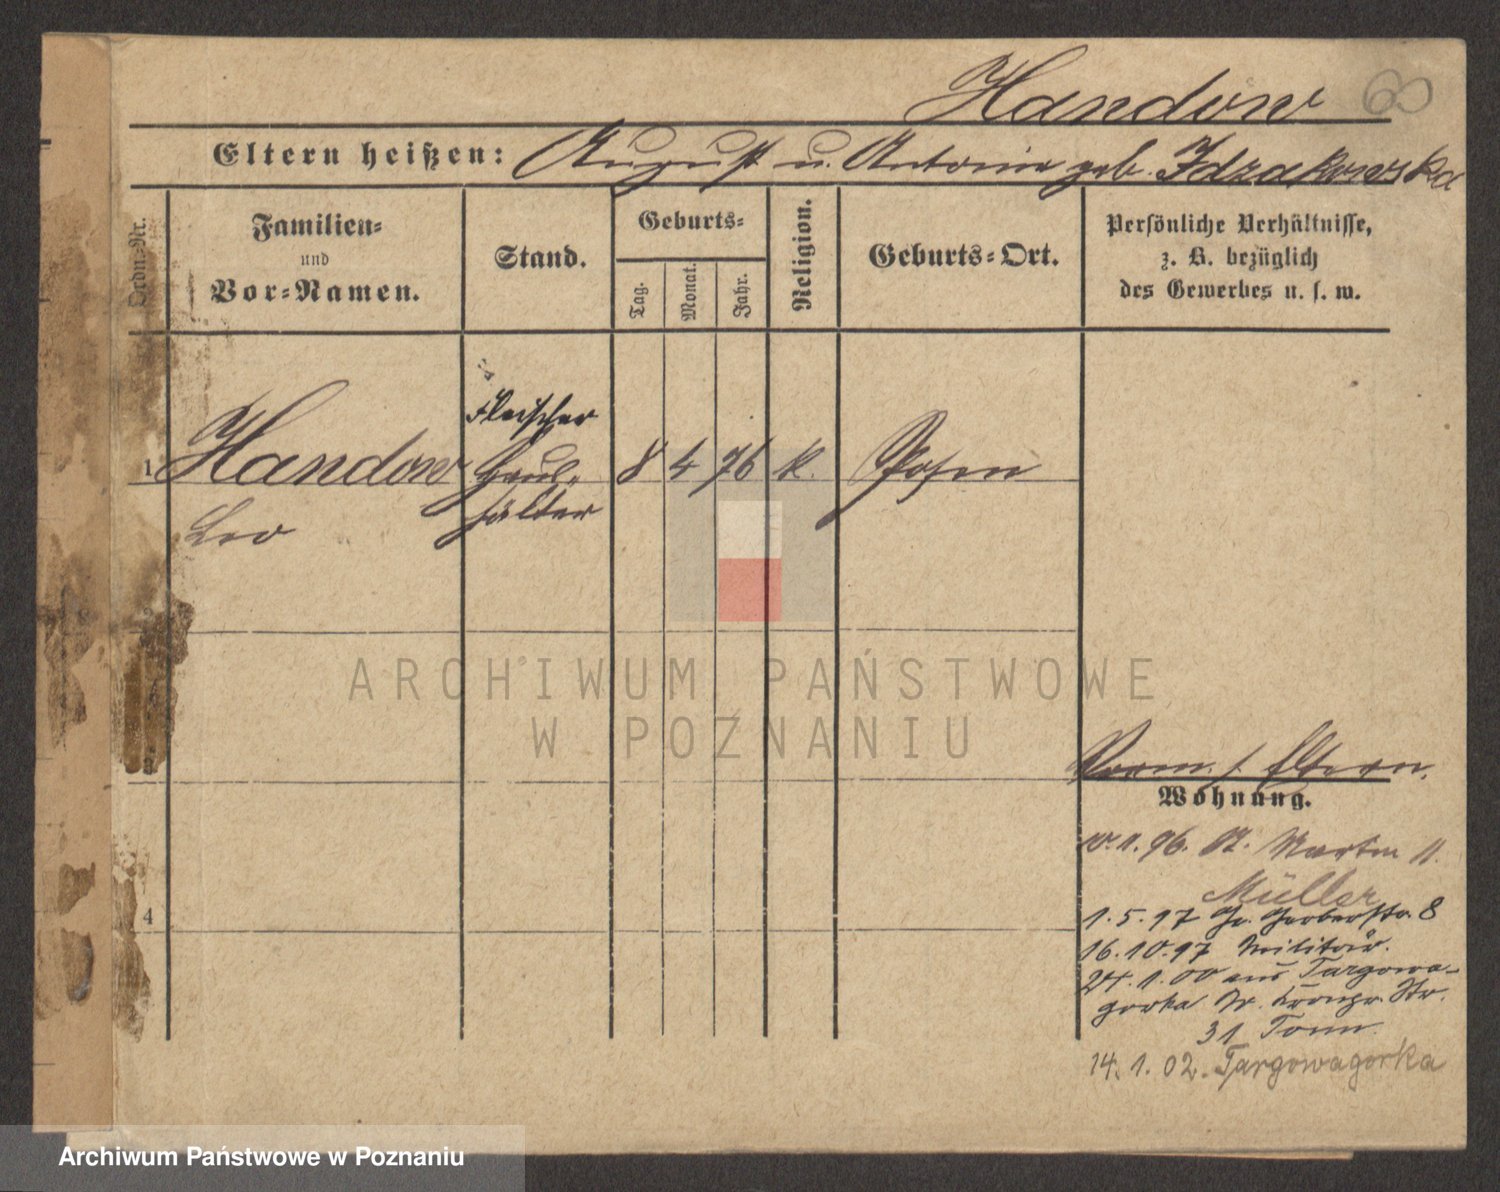 Handow 60
Eltern heißen: August u. Antonie geb. Idzakowska
Ordn.-Nr.
Familien-
und
Vor-Namen.
Stand.
Geburts-
Tag.
Monat.
Jahr.
Religion.
Geburts-Ort.
Persönliche Verhältnisse,
z. B. bezüglich
des Gewerbes u. s. w.
Fleischer
1 Handow Haus- 8 4 76 k. Posen
Leo hälter
ARCHIWUM PAŃSTWOWE
W POZNANIU
3
Vorm. s. Eltern.
Wohnung.
1. 96. St. Martin 11.
Müller
4
1. 5. 97 Gr. Gerberstr. 8
16. 10. 97 Militär.
24. 1. 00 aus Targowa-
gorka Kronpr. Str.
31 Tonn.
14. 1. 02. Targowagorka
Archiwum Państwowe w Poznaniu